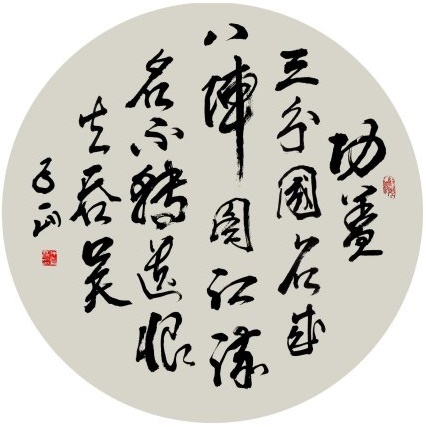 功蓋
三分國名成
八陣圖江流
石不轉遺恨
失吞吳